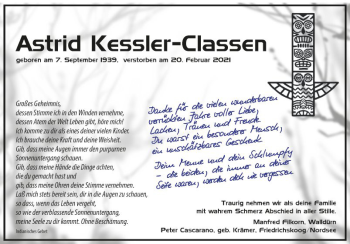 Astrid Kessler-Classen
geboren am 7. September 1939, verstorben am 20. Februar 2021
Großes Geheimnis,
dessen Stimme ich in den Winden vernehme,
dessen Atem der Welt Leben gibt, höre mich!
Ich komme zu dir als eines deiner vielen Kinder.
Ich brauche deine Kraft und deine Weisheit.
Gib, dass meine Augen immer den purpurnen
Sonnenuntergang schauen.
Gib, dass meine Hände die Dinge achten,
die du gemacht hast und
gib, dass meine Ohren deine Stimme vernehmen.
Laß mich stets bereit sein, dir in die Augen zu schauen,
so dass, wenn das Leben vergeht,
so wie der verblassende Sonnenuntergang,
meine Seele zu dir kommt. Ohne Beschämung.
Indianisches Gebet
Danke für die vielen wunderbaren
verrückten Jahre voller Liebe,
Lachen, Tränen und Freude
Du warst ein besonderer Mensch,
ein unschätzbares Geschenk
Deine Meume und dein Schlumpfy
- die beiden, die immer an deiner
Seite waren, werden dich nie vergessen
Traurig nehmen wir als deine Familie
mit wahrem Schmerz Abschied in aller Stille.
Manfred Pilkorn, Walldürn
Peter Cascarano, geb. Krämer, Friedrichskoog/Nordsee